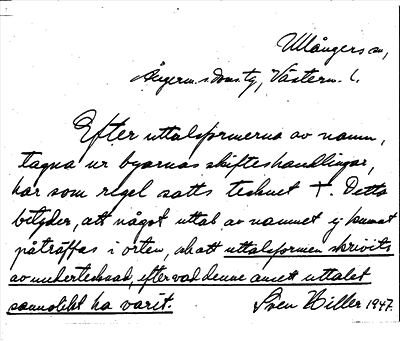 Ullångers sn,
Ångerm. s. doms tg, Västern. l.
Efter uttalsformerna av namn,
tagna ur byarnas skifteshandlingar,
har som regel satts tecknet †. Detta
betyder, att något uttal av namnet ej kunnat
påträffas i orten, utan att uttalsformen skrivits
av undertecknad, efter vad denne ansett uttalet
sannolikt ha varit. Sven Hiller 1947.